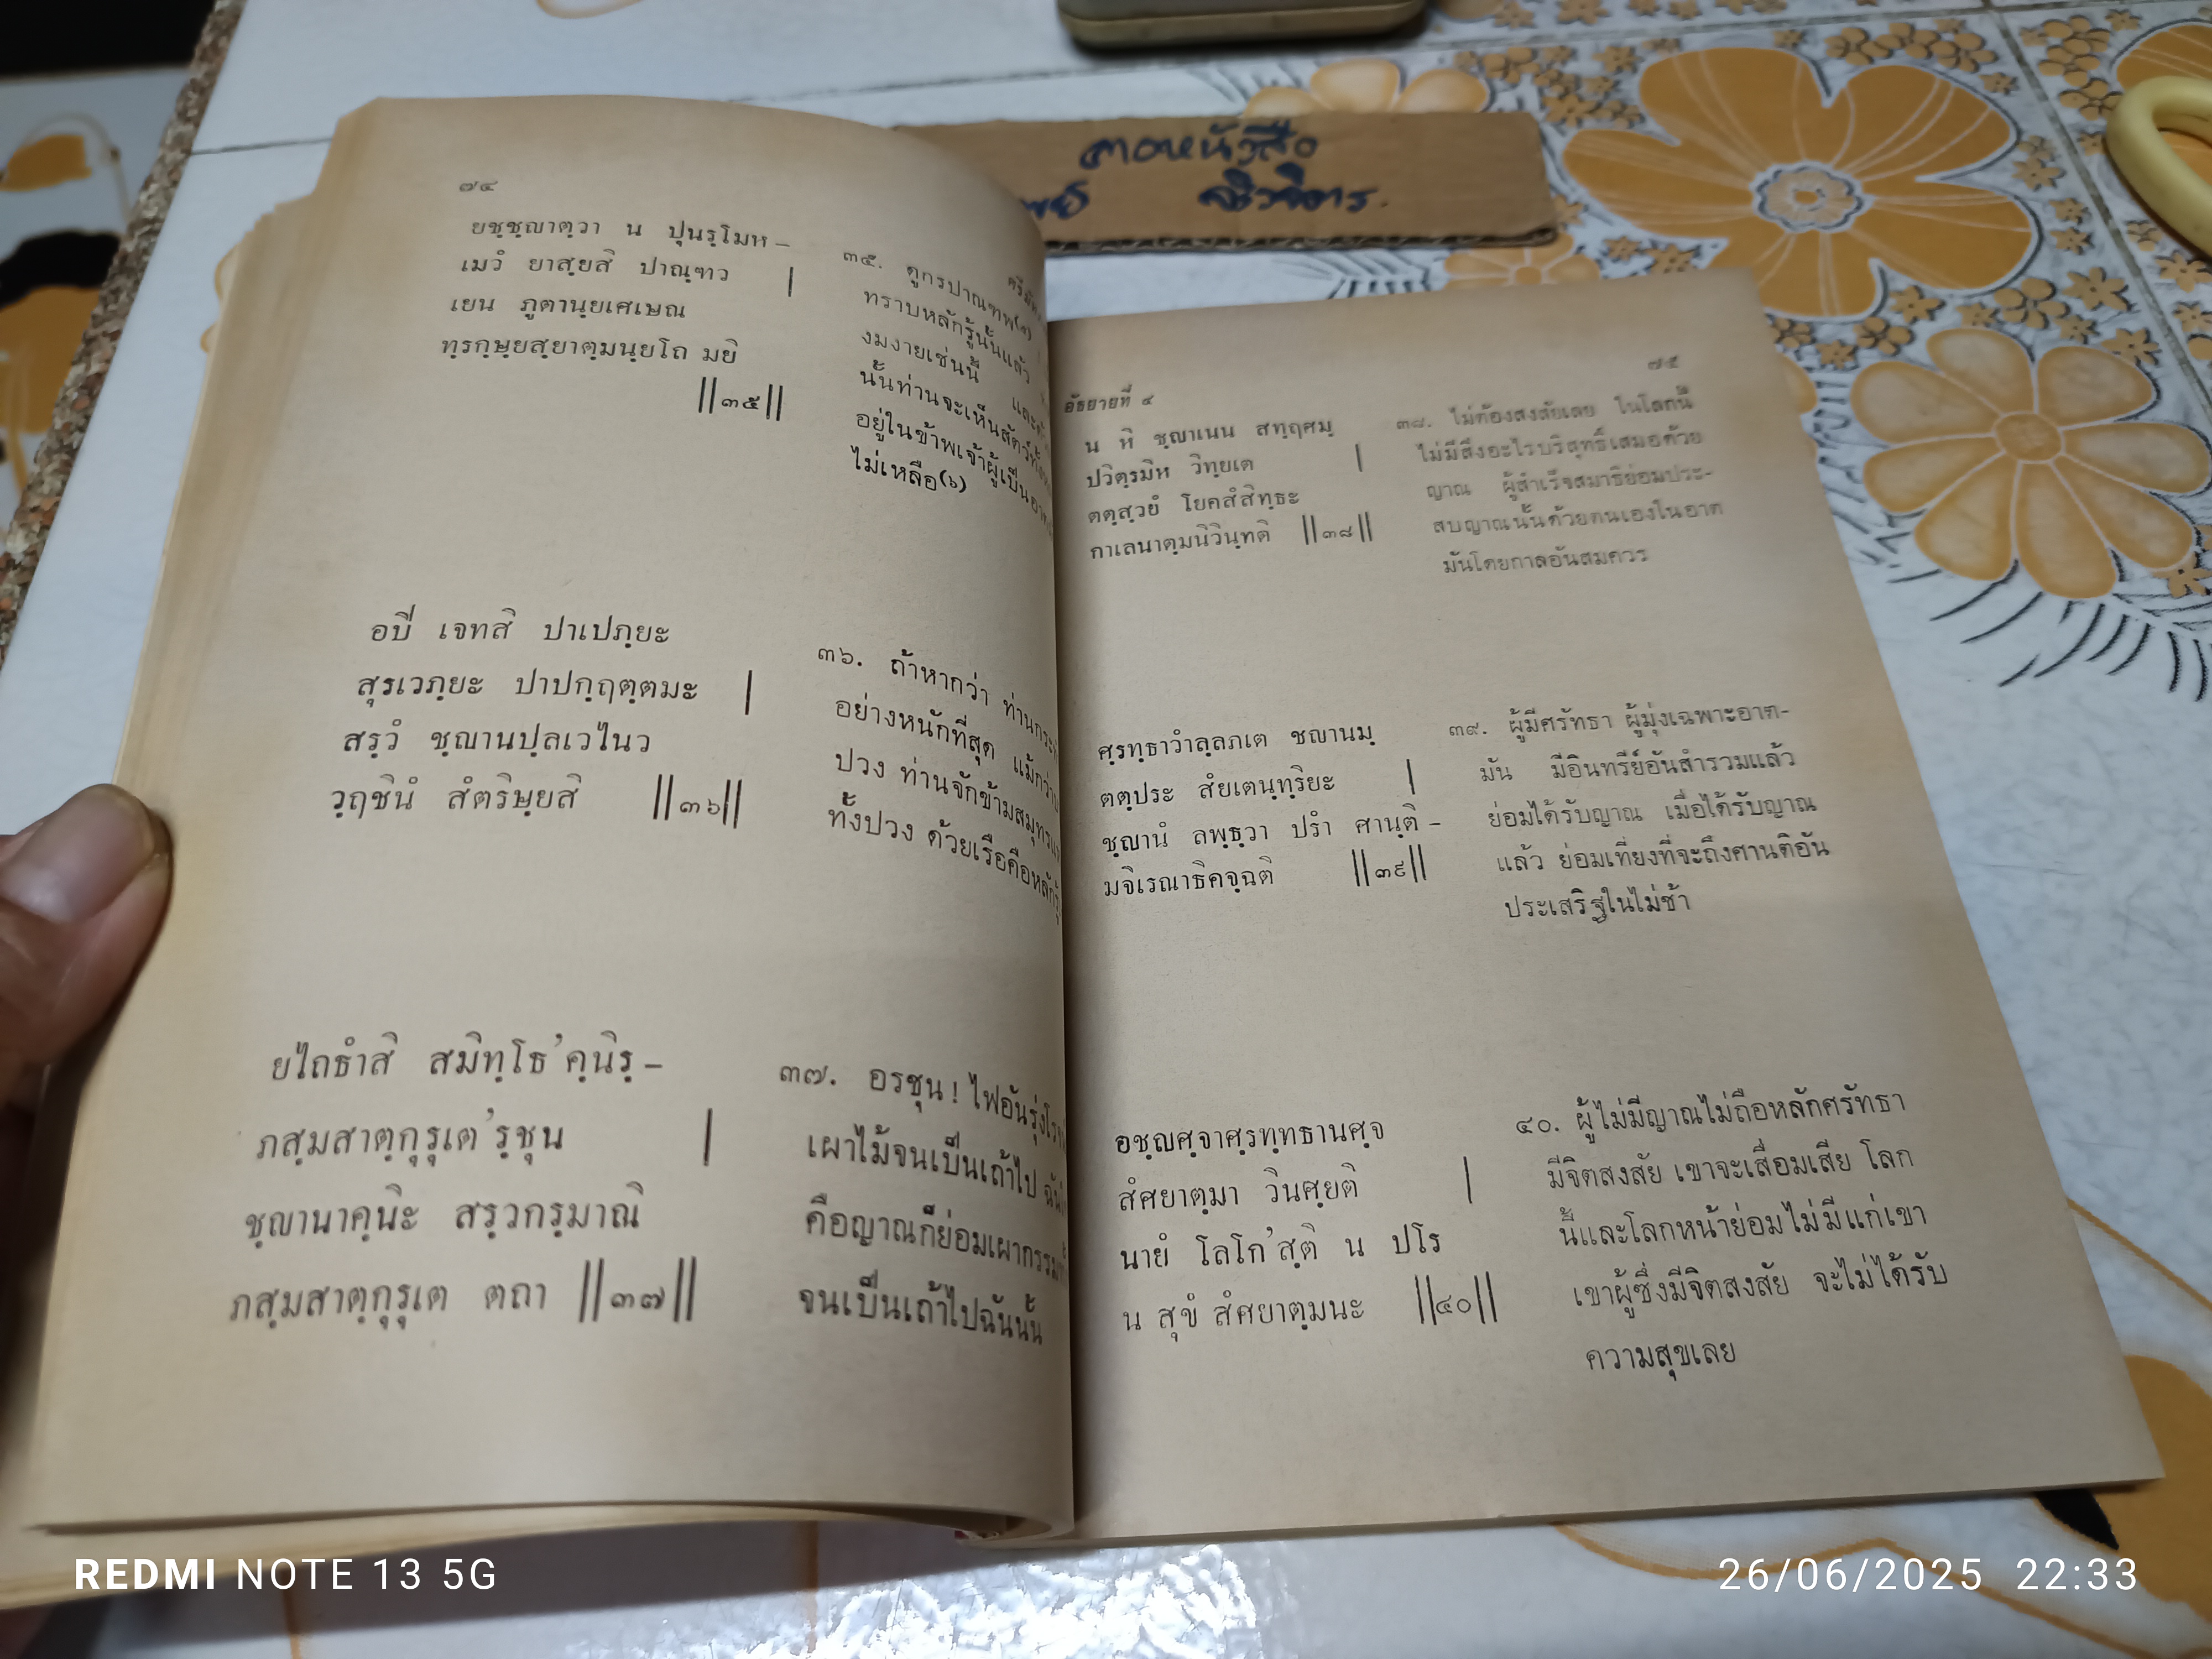 ๗๔
ยชฺชฺญาตฺวา น ปุนรฺโมห–
เมวํ ยาสฺยสิ ปาณฺฑว |
เยน ภูตานฺยเศเษณ
ทฺรกฺษฺยสฺยาตฺมนฺยโถ มยิ
||๓๕||
๓๕. ดูกรปาณฑพ(๑)
ทราบหลักรู้นั้นแล้ว
งมงายเช่นนี้ และ
นั้นท่านจะเห็นสัตว์
อยู่ในข้าพเจ้าผู้เป็น
ไม่เหลือ(๖)
อปี เจทสิ ปาเปภฺยะ
สรฺเวภฺยะ ปาปกฺฤตฺตมะ |
สรฺวํ ชฺญานปฺลเวไนว
วฺฤชินํ สํตริษฺยสิ ||๓๖||
๓๖. ถ้าหากว่า ท่าน
อย่างหนักที่สุด แม้กว่า
ปวง ท่านจักข้ามสมุทร
ทั้งปวง ด้วยเรือคือหลัก
ยไถธําสิ สมิทฺโธ'คฺนิรฺ–
ภสฺมสาตฺกุรุเต'รฺชุน |
ชฺญานาคฺนิะ สรฺวกรฺมาณิ
ภสฺมสาตฺกุรุเต ตถา ||๓๗||
๓๗. อรชุน ! ไฟอันรุ่ง
เผาไม้จนเป็นเถ้าไป
คือญาณก็ย่อมเผากรรม
จนเป็นเถ้าไปฉันนั้น
อัธยายที่ ๔
๗๕
น หิ ชฺญาเนน สทฺฤศมฺ
ปวิตฺรมิห วิทฺยเต |
ตตฺสฺวยํ โยคสํสิทฺธะ
กาเลนาตฺมนิวินฺทติ ||๓๘||
๓๘. ไม่ต้องสงสัยเลย ในโลกนี้
ไม่มีสิ่งอะไรบริสุทธิ์เสมอด้วย
ญาณ ผู้สำเร็จสมาธิย่อมประ-
สบญาณนั้นด้วยตนเองในอาต
มันโดยกาลอันสมควร
ศฺรทฺธาวําลฺลภเต ชญานมฺ
ตตฺประ สํยเตนฺทฺริยะ |
ชฺญานํ ลพฺธฺวา ปรํา ศานฺติ–
มจิเรณาธิคจฺฉติ ||๓๙||
๓๙. ผู้มีศรัทธา ผู้มุ่งเฉพาะอาต-
มัน มีอินทรีย์อันสำรวมแล้ว
ย่อมได้รับญาณ เมื่อได้รับญาณ
แล้ว ย่อมเที่ยงที่จะถึงศานติอัน
ประเสริฐในไม่ช้า
อชฺญศฺจาศฺรทฺทธานศฺจ
สํศยาตฺมา วินศฺยติ |
นายํ โลโก'สฺติ น ปโร
น สุขํ สํศยาตฺมนะ ||๔๐||
๔๐. ผู้ไม่มีญาณไม่ถือหลักศรัทธา
มีจิตสงสัย เขาจะเสื่อมเสีย โลก
นี้และโลกหน้าย่อมไม่มีแก่เขา
เขาผู้ซึ่งมีจิตสงสัย จะไม่ได้รับ
ความสุขเลย
REDMI NOTE 13 5G
26/06/2025 22:33